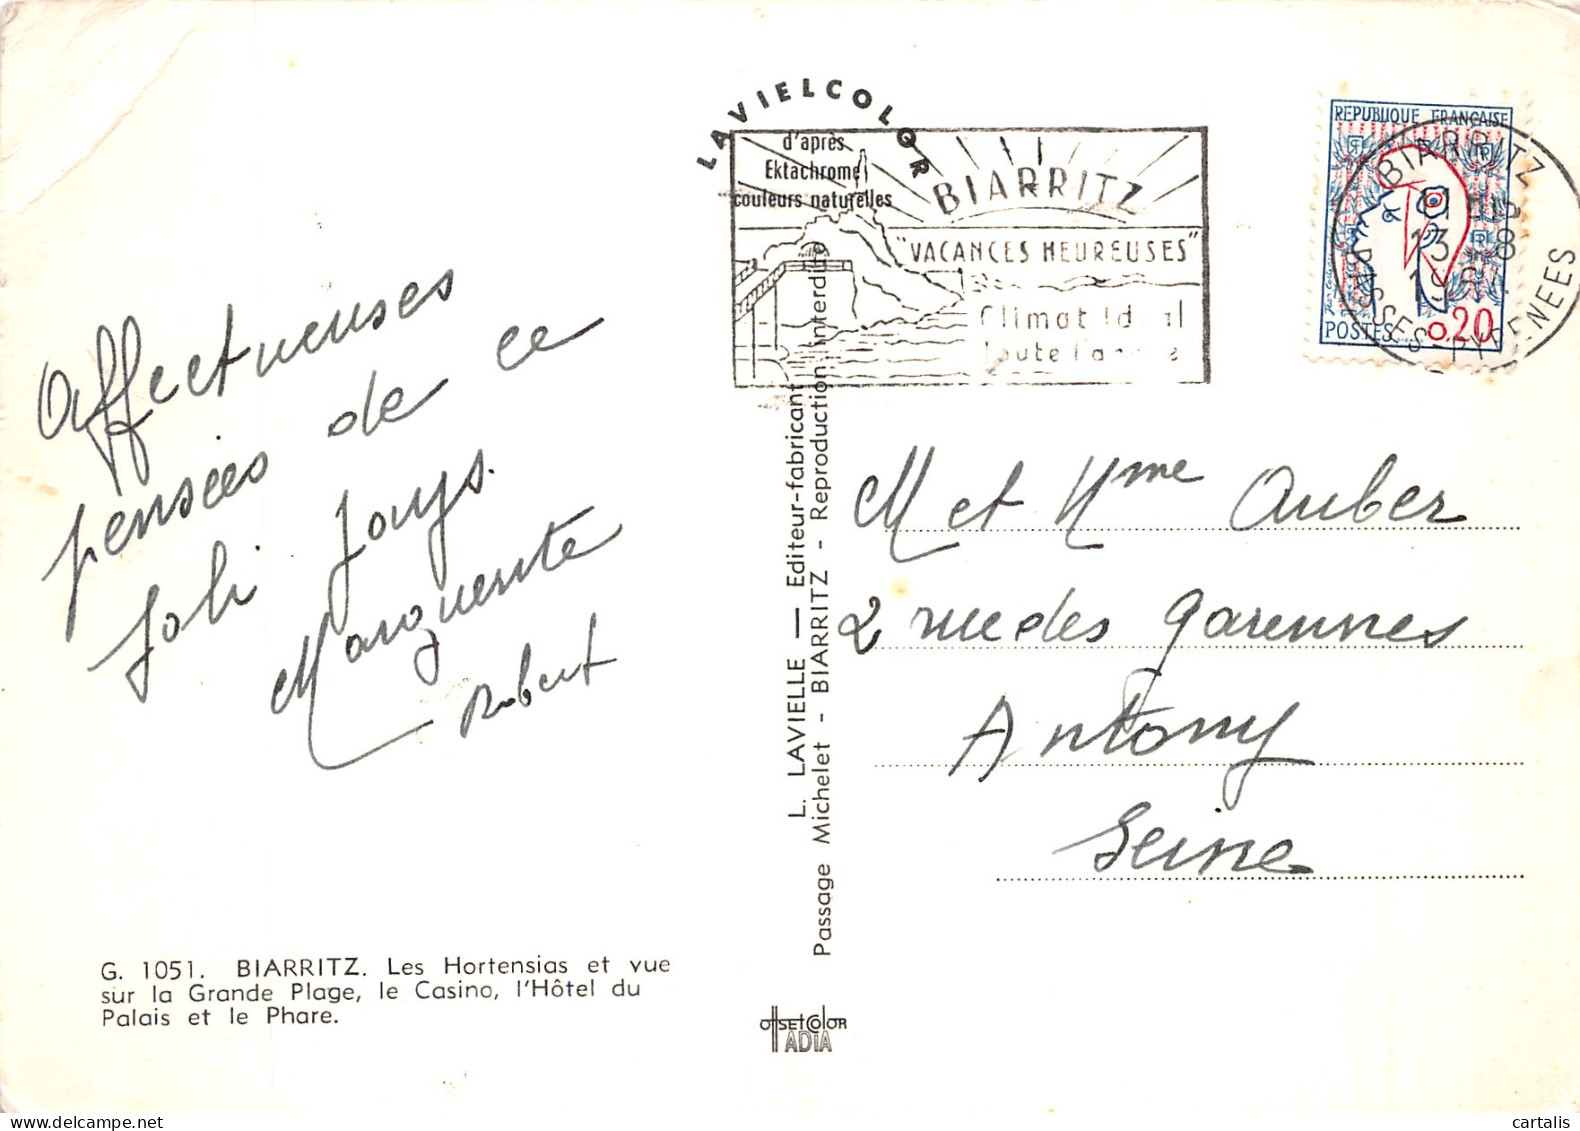 Affectueuses
pensées de ce
joli pays.
Marguerite
Robert
G. 1051. BIARRITZ. Les Hortensias et vue
sur la Grande Plage, le Casino, l'Hôtel du
Palais et le Phare.
LAVIELCOLOR
d'après
Ektachrome
couleurs naturelles
BIARRITZ
"VACANCES HEUREUSES"
Climat
toute
L. LAVIELLE — Editeur-fabricant
Passage Michelet - BIARRITZ - Reproduction interdite
OFFSETCOLOR
IADIA
REPUBLIQUE FRANÇAISE
POSTES 0,20
BIARRITZ
13 - 8
BASSES PYRENEES
M et Mme Auber
2 rue des Garennes
Antony
Seine
cartalis